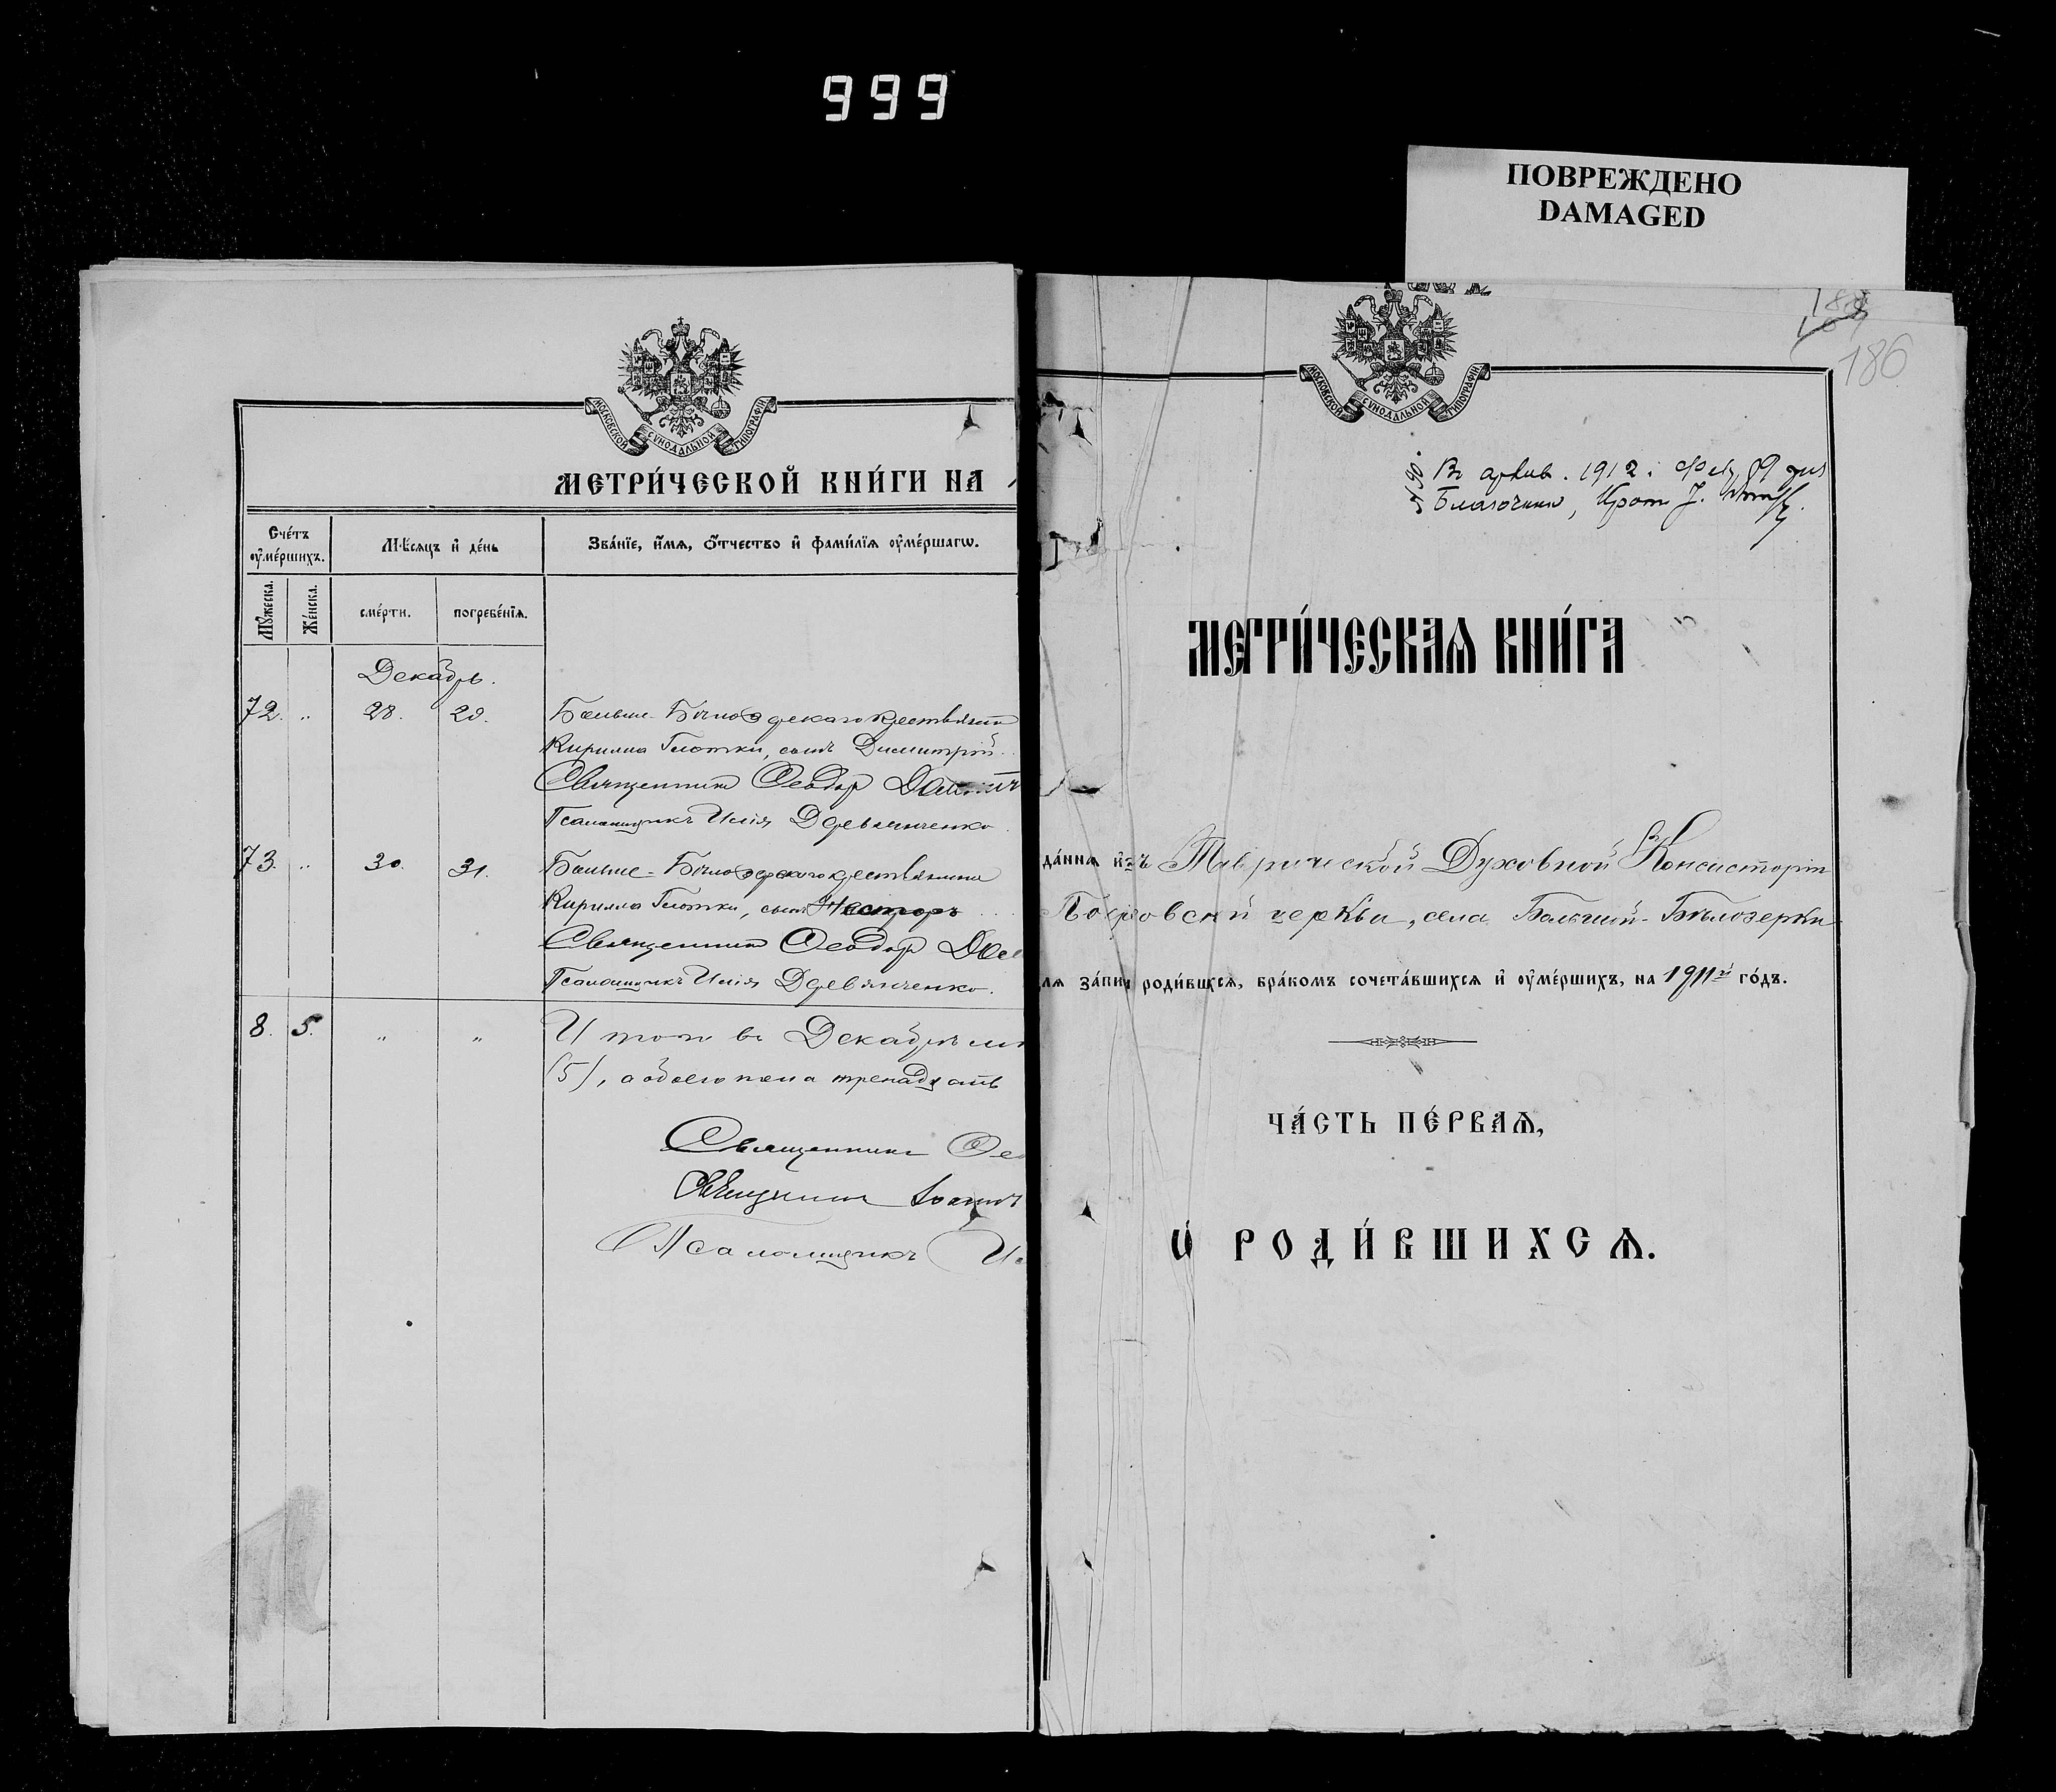 999
ПОВРЕЖДЕНО
DAMAGED
МОСКОВСКОЙ СѴНОДАЛЬНОЙ ТИПОГРАФІИ
МЕТРИ́ЧЕСКОЙ КНИ́ГИ НА
Сче́тъ оу҆ме́ршихъ.
Мѣ́сяцъ и҆ де́нь
Зва́нїе, и҆́мѧ, ѻ҆́тчество и҆ фами́лїѧ оу҆ме́ршагѡ.
Мꙋ́жеска.
Же́нска.
сме́рти.
погребе́нїѧ.
Декабрь.
72. „ 28. 29. Больше-Бѣлозерскаго крестьянина
Кирилла Глотки, сынъ Димитрій.
Священникъ Ѳеодоръ
Псаломщикъ Илія Деревянченко.
73. „ 30. 31. Больше-Бѣлозерскаго крестьянина
Кирилла Глотки, сынъ Несторъ
Священникъ Ѳеодоръ
Псаломщикъ Илія Деревянченко.
8. 5. „ „ Итого въ Декабрѣ
(5), а обоего пола тринадцать
Священникъ Ѳео
Священникъ Іоаннъ
Псаломщикъ И
186
МОСКОВСКОЙ СѴНОДАЛЬНОЙ ТИПОГРАФІИ
№90. Въ архив. 1912
Благочинный, Прот.
МЕТРИ́ЧЕСКАѦ КНИ́ГА
да́ннаѧ и҆зъ Таврической Духовной Консисторіи
Покровской церкви, села Большой-Бѣлозерки
лѧ за́писи роди́вшихсѧ, бра́комъ сочета́вшихсѧ и҆ оу҆ме́ршихъ, на 1911й го́дъ.
ЧА́СТЬ ПЕ́РВАѦ,
Ѡ҆ РОДИ́ВШИХСѦ.